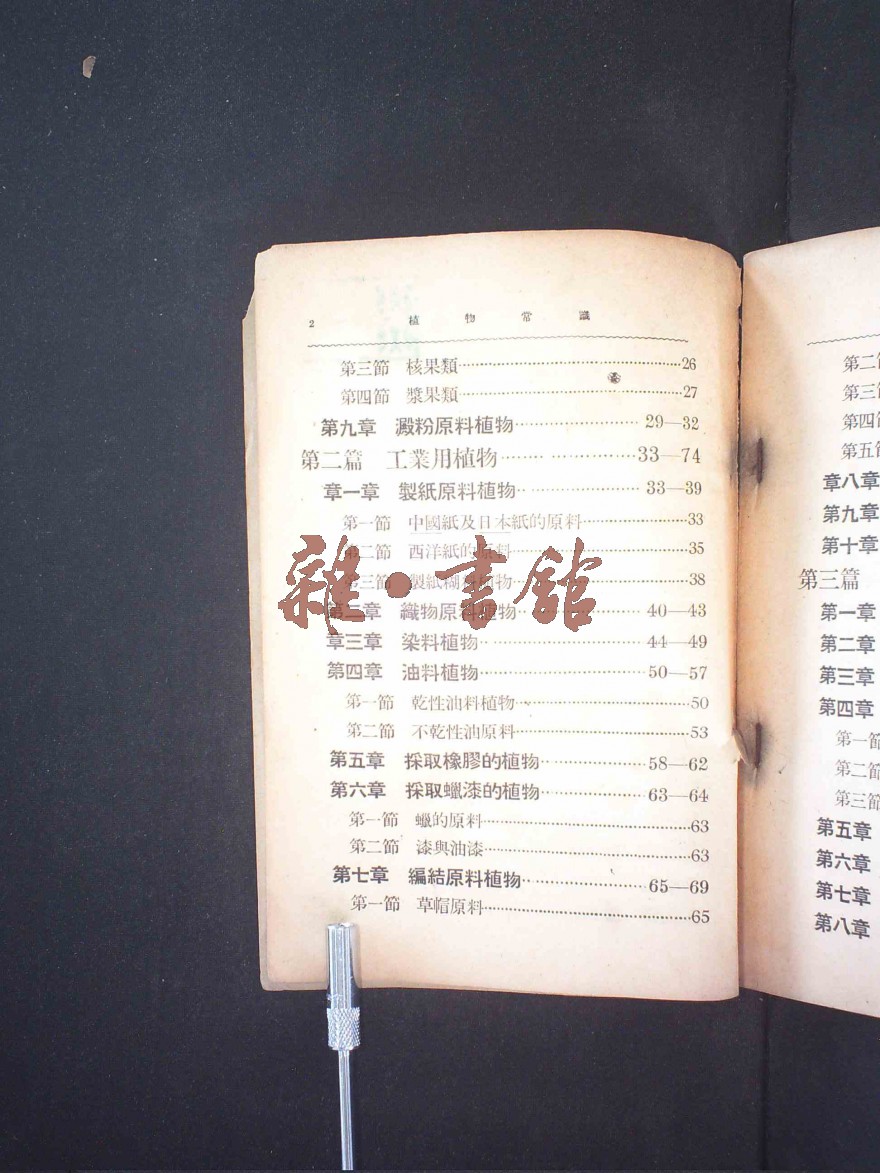 2 植物常識
第三節 核果類……26
第四節 漿果類……27
第九章 澱粉原料植物……29—32
第二篇 工業用植物……33—74
章一章 製紙原料植物……33—39
第一節 中國紙及日本紙的原料……33
第二節 西洋紙的原料……35
第三節 製紙糊料植物……38
第二章 織物原料植物……40—43
章三章 染料植物……44—49
第四章 油料植物……50—57
第一節 乾性油料植物……50
第二節 不乾性油原料……53
第五章 採取橡膠的植物……58—62
第六章 採取蠟漆的植物……63—64
第一節 蠟的原料……63
第二節 漆與油漆……63
第七章 編結原料植物……65—69
第一節 草帽原料……65
雜·書館
第二節
第三節
第四節
第五節
章八章
第九章
第十章
第三篇
第一章
第二章
第三章
第四章
第一節
第二節
第三節
第五章
第六章
第七章
第八章